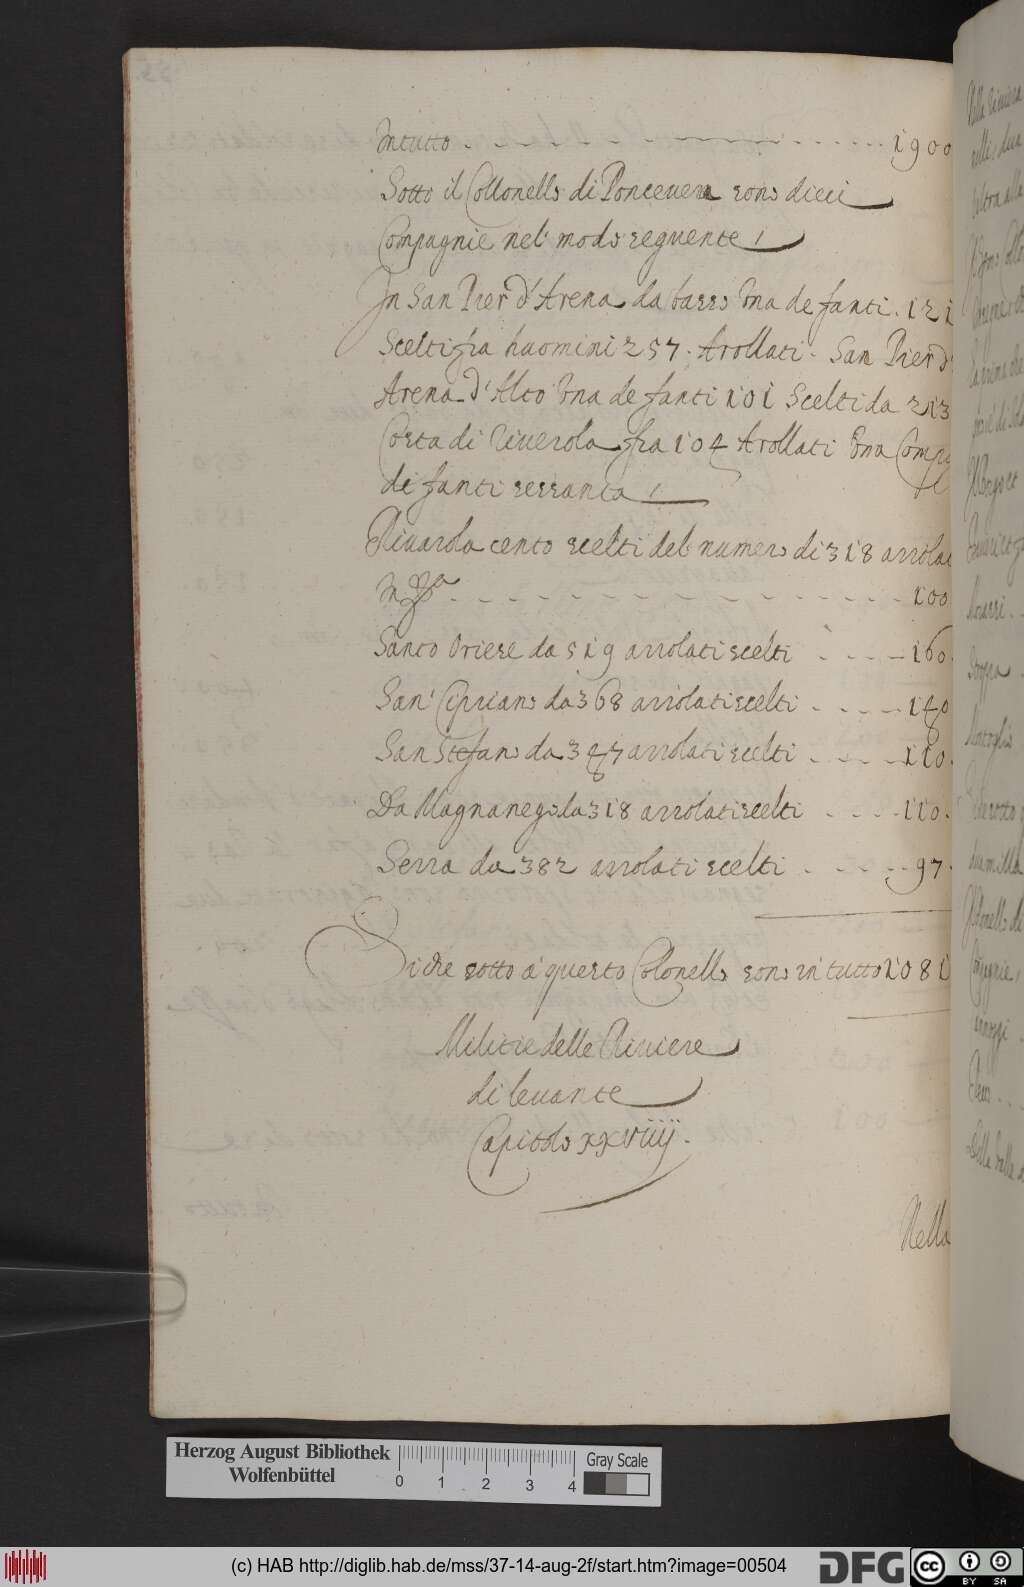 Intutto . - - - - - - - - - - . . . . . 1900
Sotto il Collonello di Poncevera sono dieci
Compagnie nel' modo seguente /
In San Pier d'Arena da basso Una de fanti . 121
Scelti fra huomini 257 . Arollati . San Pier d'
Arena d'Alto Una de fanti 101 Scelti da 213
Costa di Riverola fra 104 Arollati Una Comp
di fanti sessanta /
Rivarola cento scelti del numero di 318 arrolat
100
Santo Oriese da 519 arrolati scelti . - - - 160.
San' Cipriano da 368 arrolati scelti . . - - - 140
San Stefano da 347 arrolati scelti . - - - 110.
Da Magnanego da 318 arrolati scelti . - - - 110.
Serra da 382 arrolati scelti . - - - 97.
Siche sotto a' questo Colonello sono in' tutto 1081
Militie delle Riviere
di levante
Capitolo xxviiij .
Nella
Herzog August Bibliothek
Wolfenbüttel
0 1 2 3 4
Gray Scale
(c) HAB http://diglib.hab.de/mss/37-14-aug-2f/start.htm?image=00504
DFG
cc BY SA